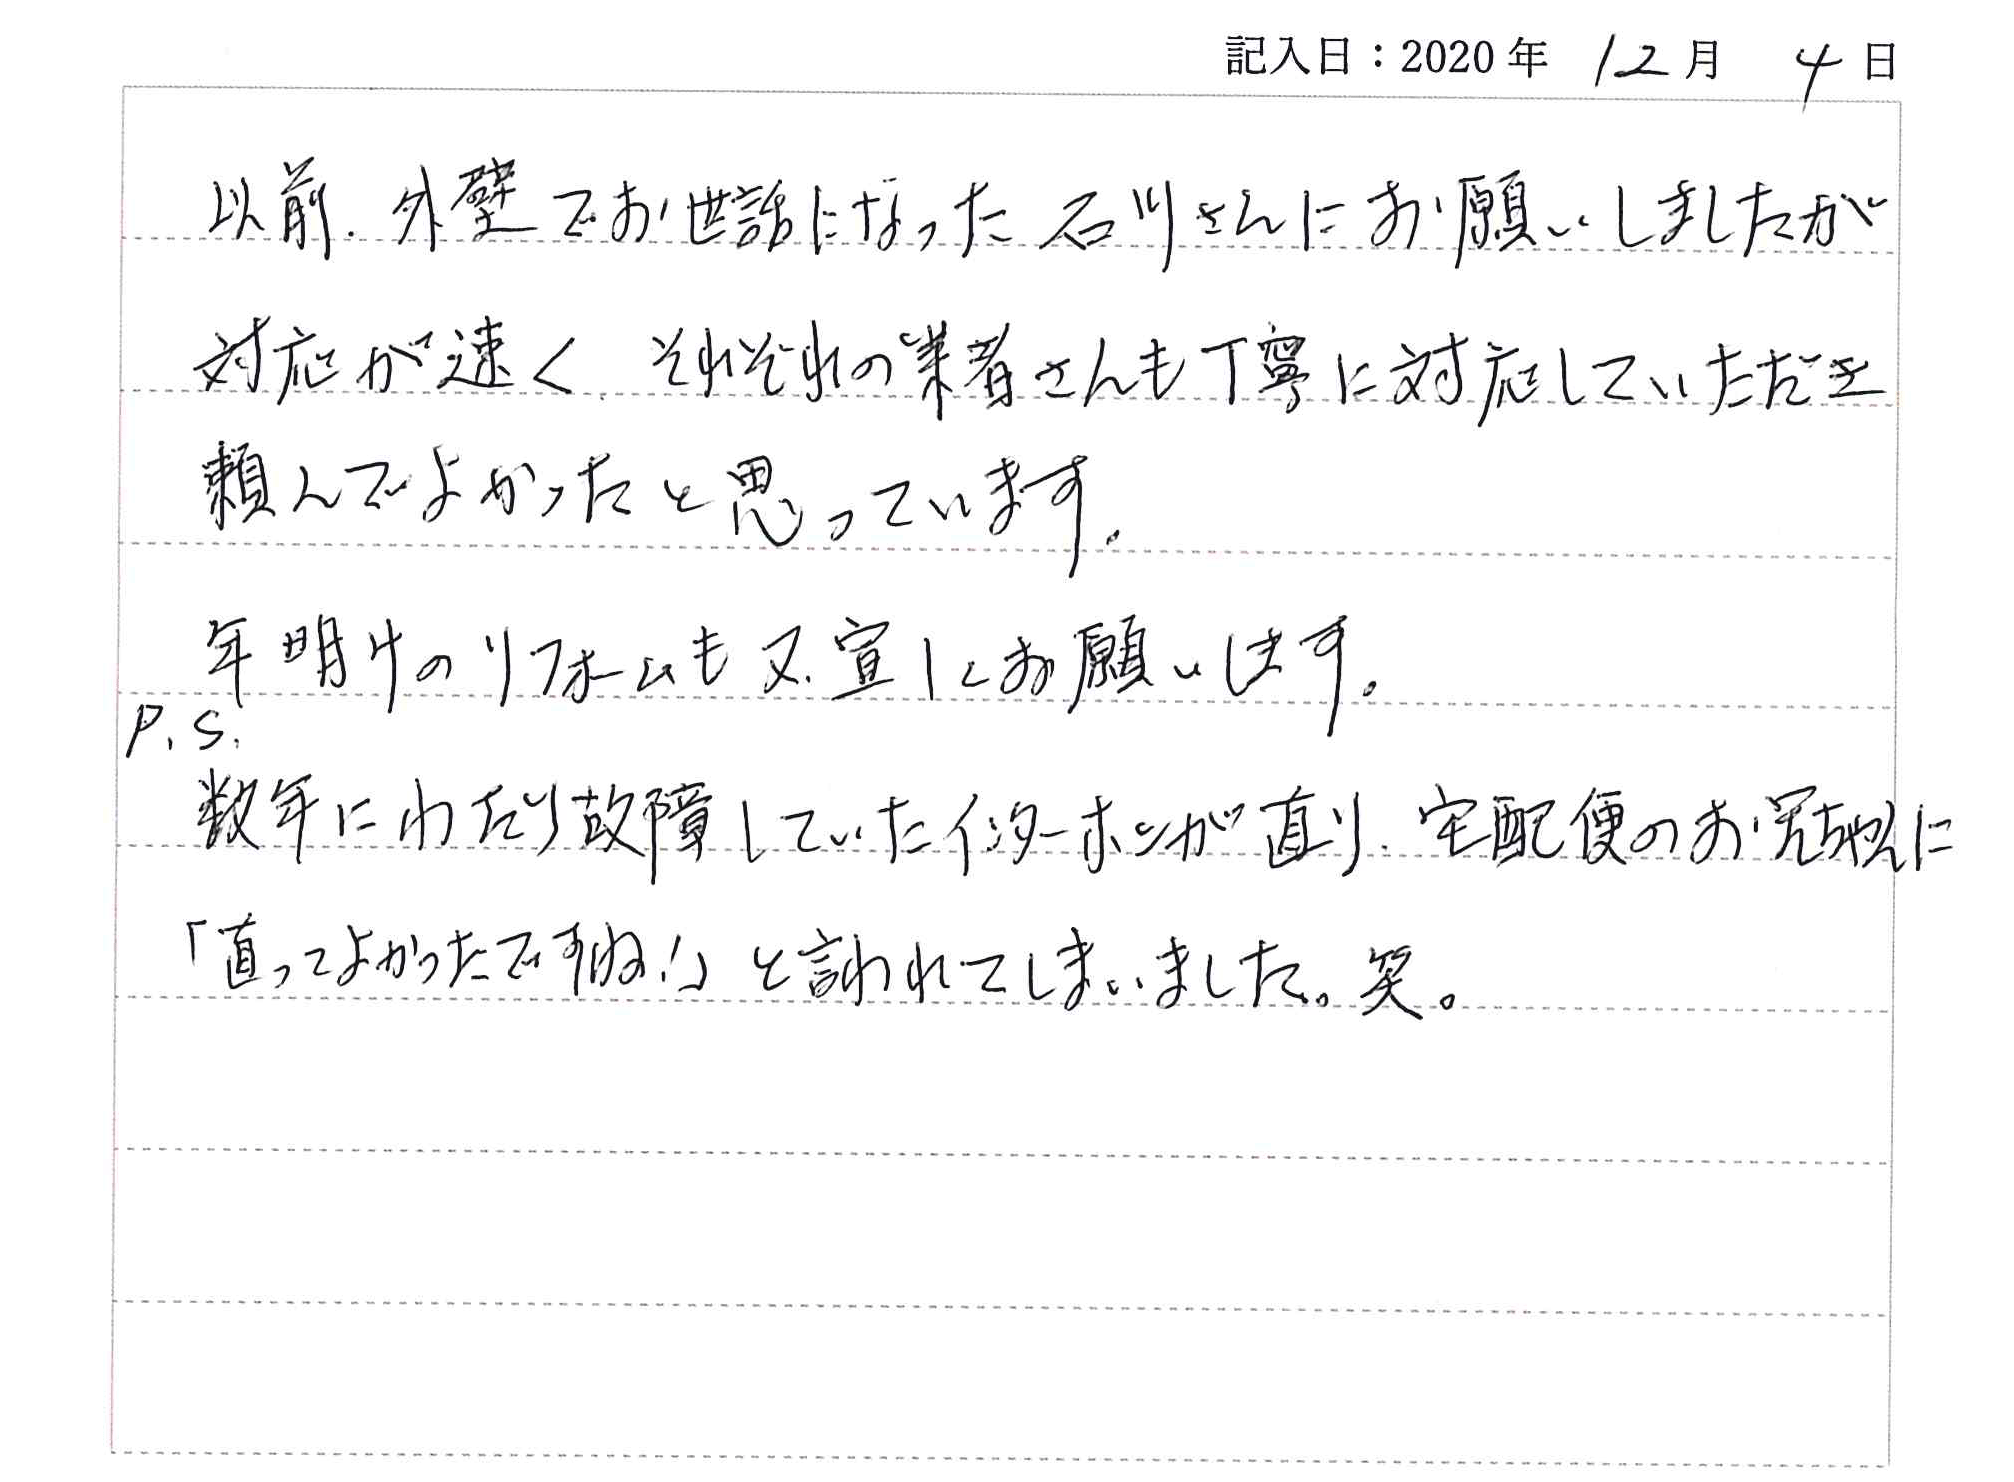 記入日：2020年 12月 4日
以前、外壁でお世話になった石川さんにお願いしましたが
対応が速く、それぞれの業者さんも丁寧に対応していただき
頼んでよかったと思っています。
年明けのリフォームも又、宜しくお願いします。
P.S.
数年にわたり故障していたインターホンが直り、宅配便のお兄ちゃんに
「直ってよかったですね!」と言われてしまいました。笑。